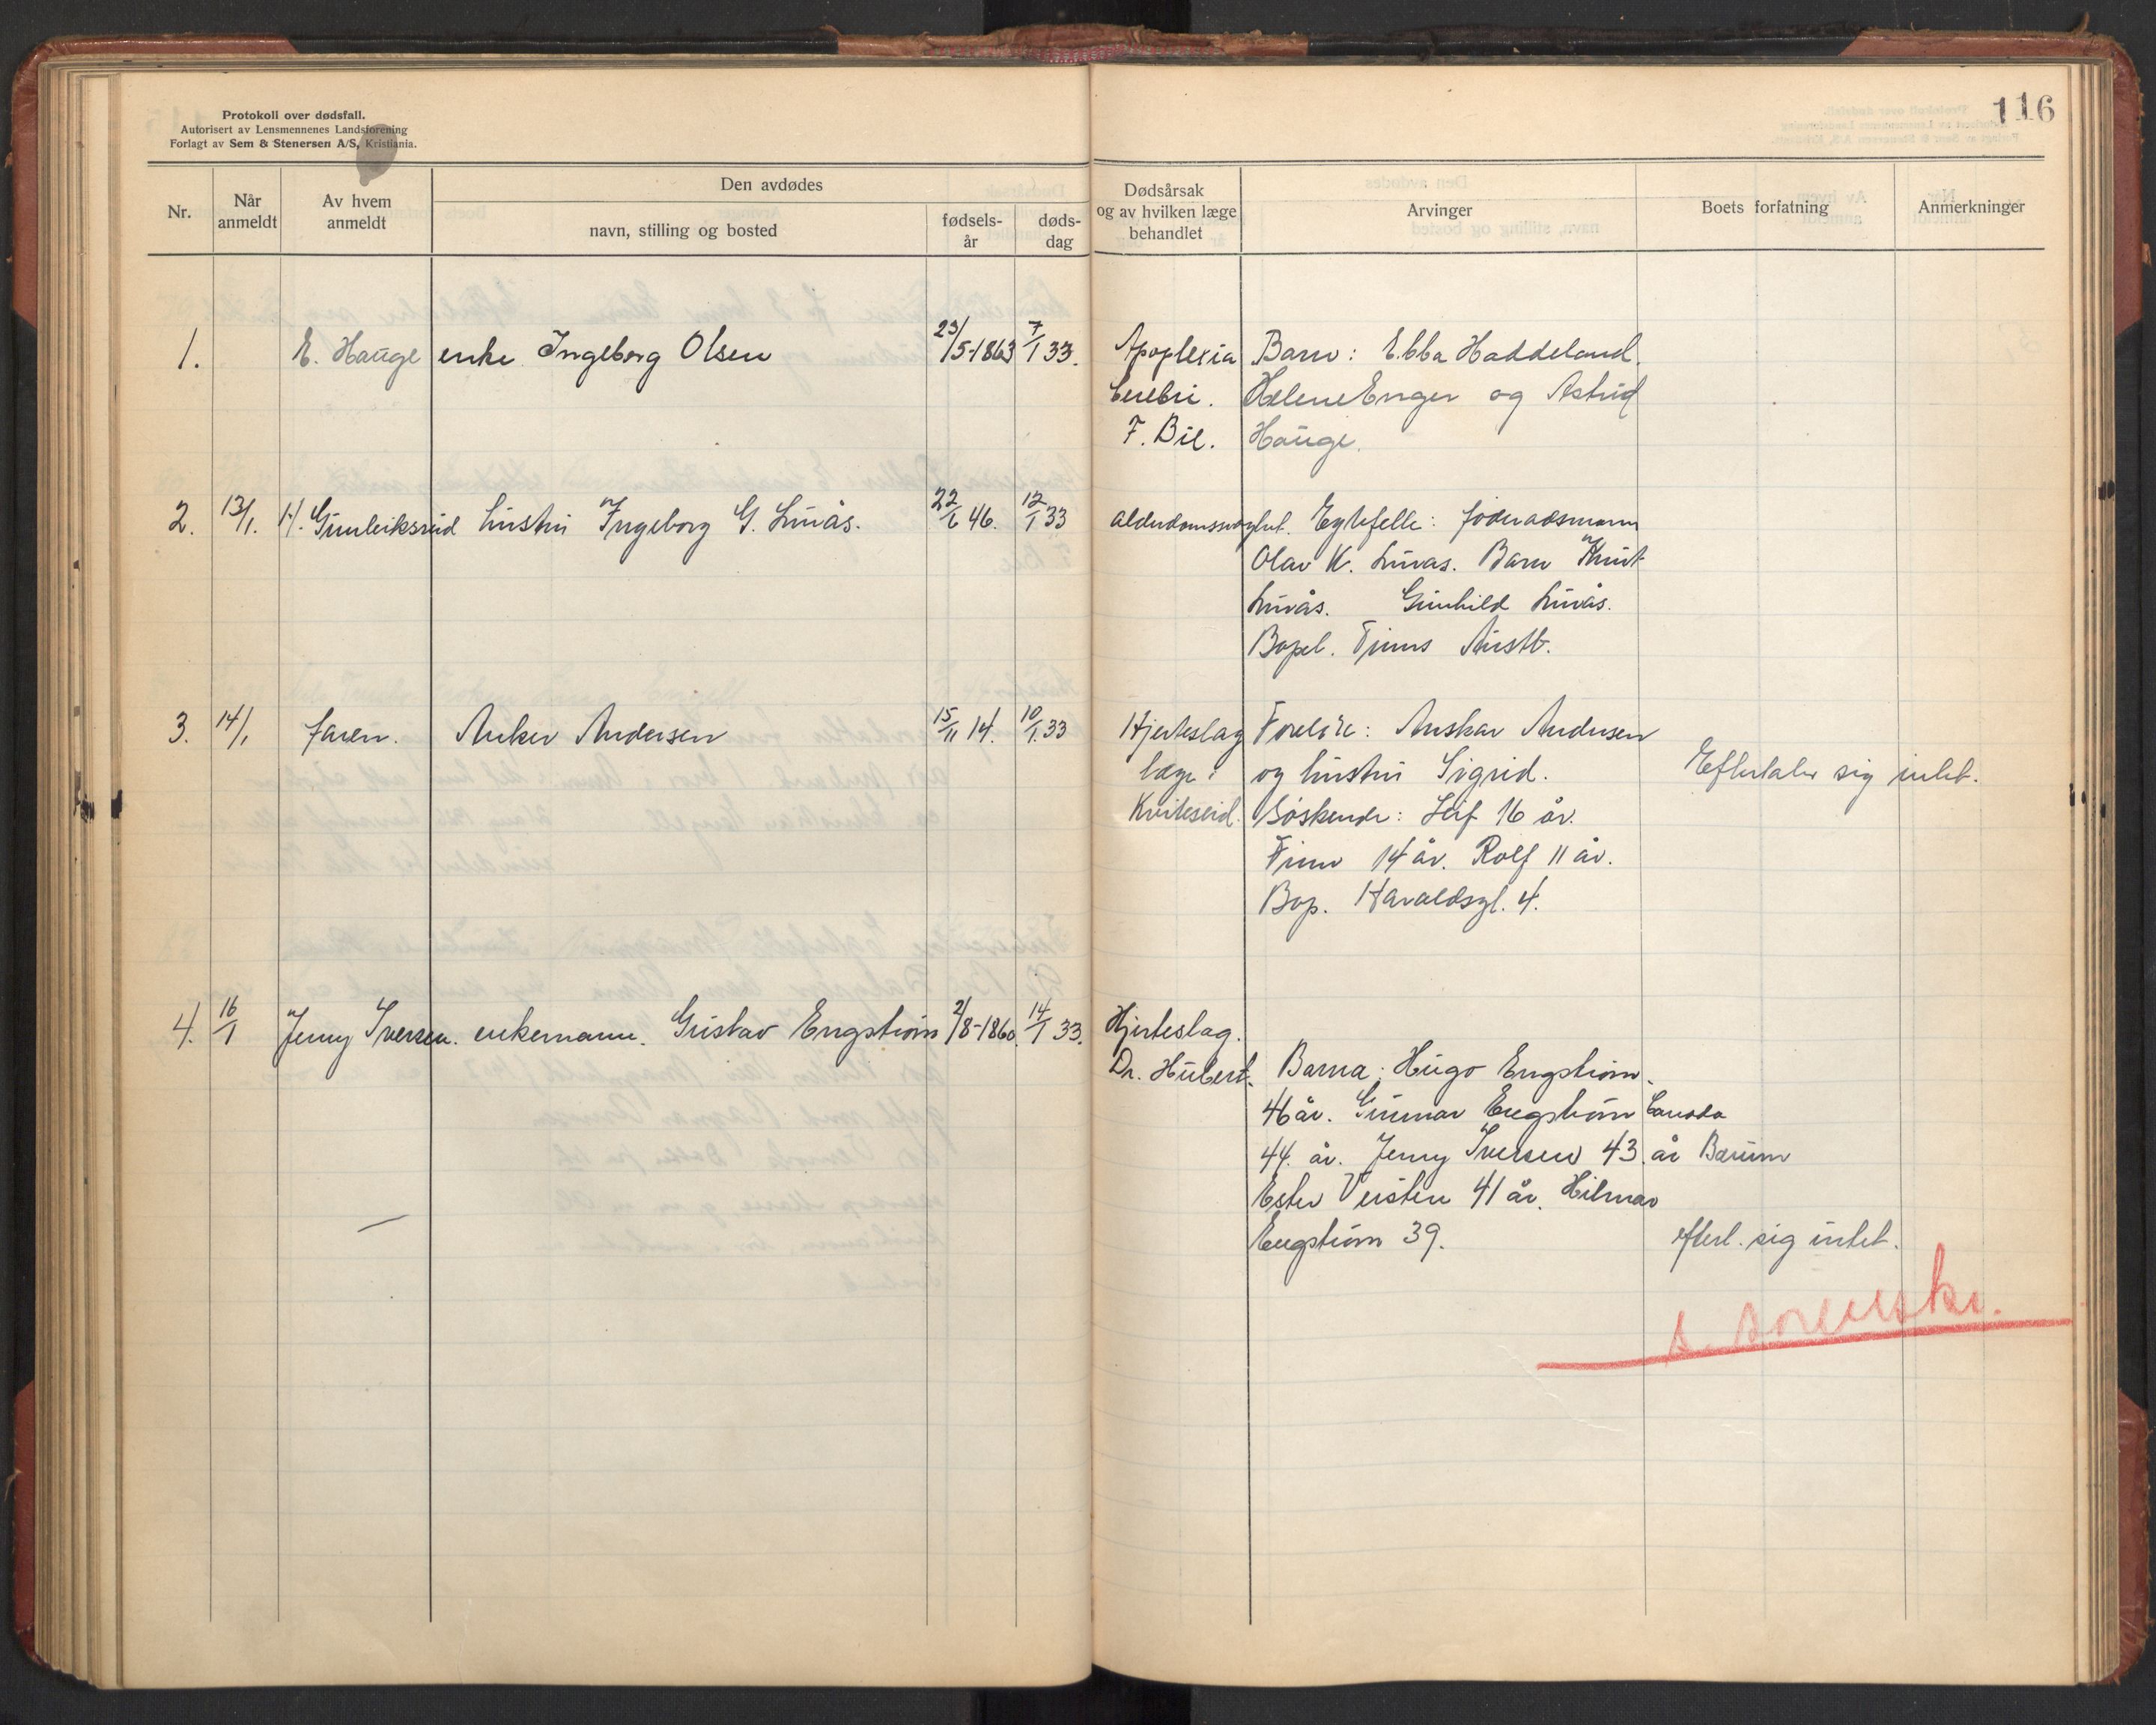 116
Protokoll over dødsfall.
Autorisert av Lensmennenes Landsforening
Forlagt av Sem & Stenersen A/S, Kristiania.
Nr.
Når anmeldt
Av hvem anmeldt
Den avdødes
navn, stilling og bosted
fødsels-år
døds-dag
Dødsårsak og av hvilken læge behandlet
Arvinger
Boets forfatning
Anmerkninger
1. E. Hauge enke Ingeborg Olsen 23/5-1863 7/1 33. Apoplexia Barn: Ebba Haddeland.
Cerebri. Helene Enger og Astrid
F. Bie. Hauge.
2. 13/1. H. Gunleiksrud hustru Ingeborg G. Lurås. 22/6 46. 12/1 33 alderdomssvaghet. Egtefelle: føderådsmann
Olav K. Luras. Barn Knut
Lurås. Gunhild Lurås.
Bopel. Tinns Austb.
3. 14/1 faren. Anker Andersen 15/11 14. 10/1.33 Hjerteslag Foreldre: Anskar Andersen
læge i og hustru Sigrid. Efterlater sig intet.
Kviteseid. Søskende: Leif 16 år.
Finn 14 år. Rolf 11 år.
Bop. Haraldsgt. 4.
4. 16/1 Jenny Iversen. enkemann. Gustav Engstrøm 2/8-1860. 14/1 33. Hjerteslag.
Dr. Hubert. Barna: Hugo Engstrøm.
46 år. Gunnar Engstrøm Canada
44. år. Jenny Iversen 43. år Bærum
Ester 41 år. Hilmar
Engstrøm 39. efterl. sig intet.
s. sorenskr.